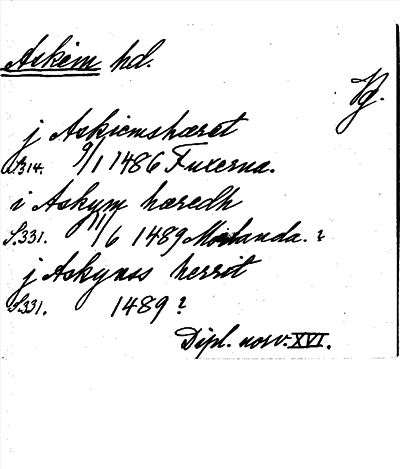 Askim hd.
Vg.
j Askiemshæret
S. 314. 9/1 1486 Fuxerna.
i Askym hæredh
S. 331. 11/6 1489 Morlanda. ?
j Askynss herrit
S. 331. 1489 ?
Dipl. norv. XVI.